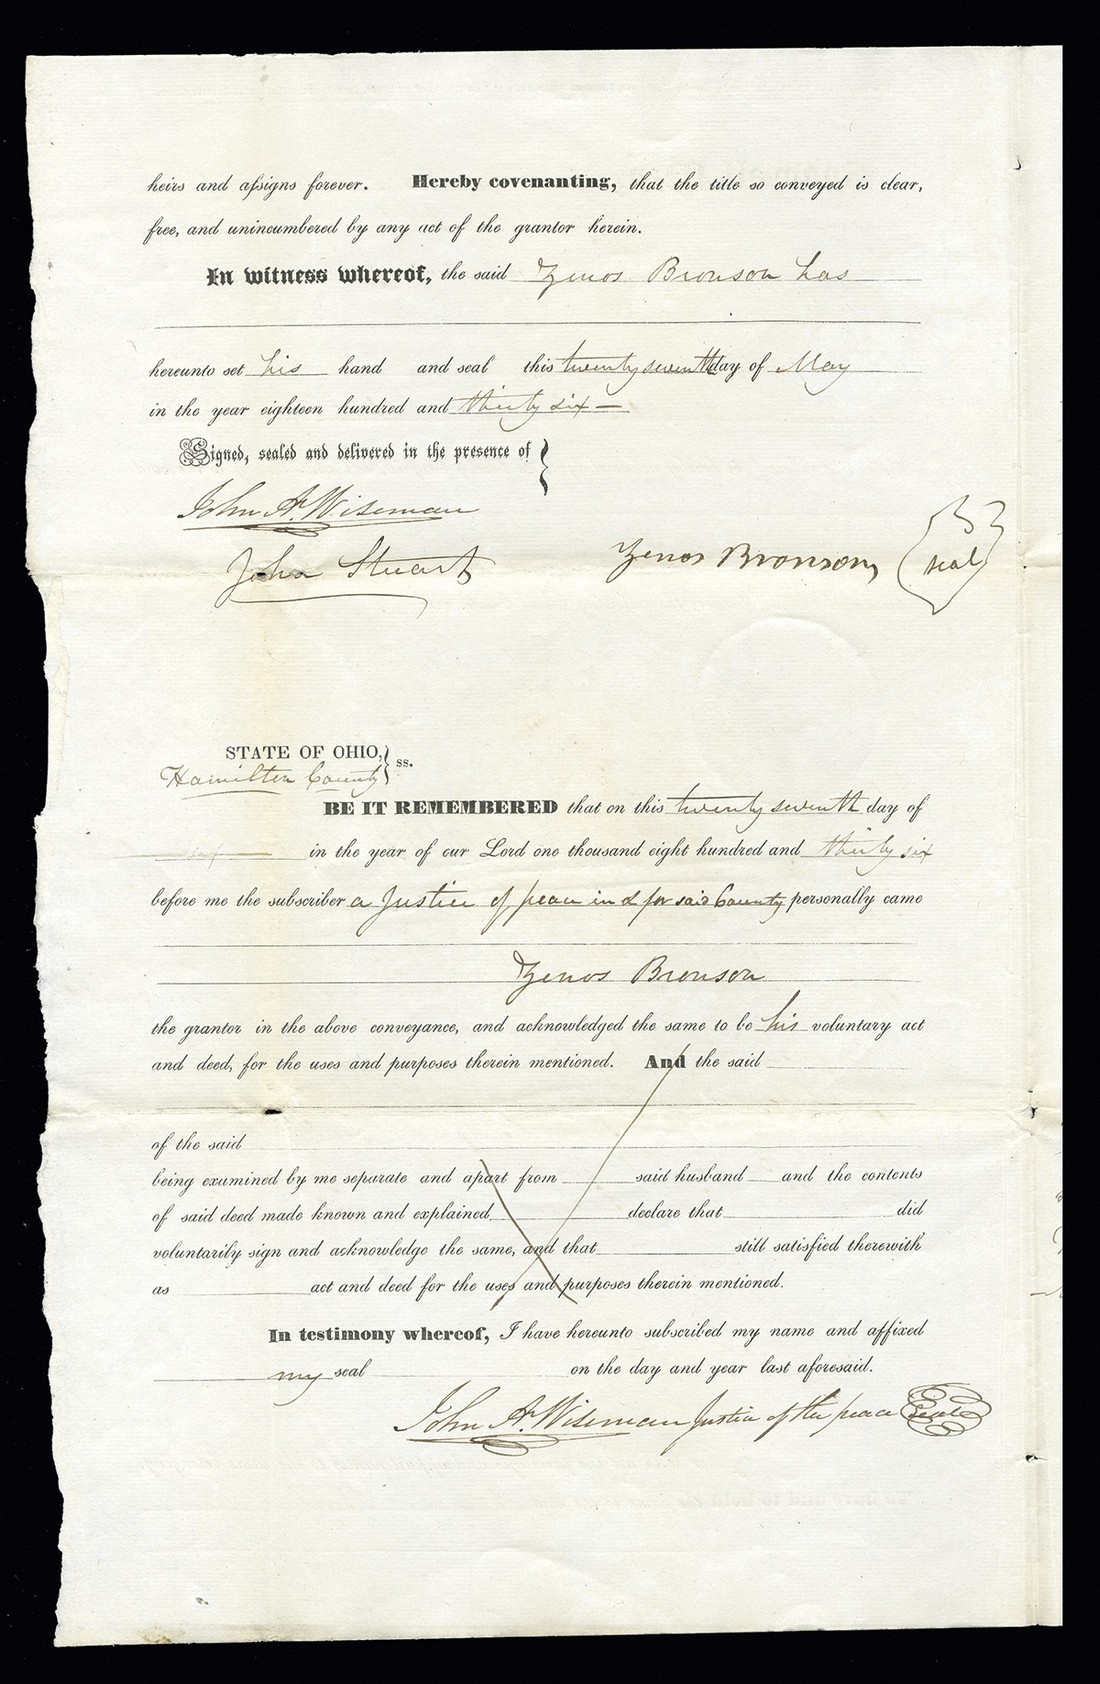 heirs and aſsigns forever. Hereby covenanting, that the title so conveyed is clear,
free, and unincumbered by any act of the grantor herein.
In witness whereof, the said Zenos Bronson has
hereunto set his hand and seal this twenty seventh day of May
in the year eighteen hundred and thirty six —
Signed, sealed and delivered in the presence of
John A. Wiseman
John Stuart
Zenos Bronson
seal
STATE OF OHIO,
ss.
Hamilton County
BE IT REMEMBERED that on this twenty seventh day of
in the year of our Lord one thousand eight hundred and thirty six
before me the subscriber a Justice of peace in & for said County personally came
Zenos Bronson
the grantor in the above conveyance, and acknowledged the same to be his voluntary act
and deed, for the uses and purposes therein mentioned. And the said
of the said
being examined by me separate and apart from said husband and the contents
of said deed made known and explained declare that did
voluntarily sign and acknowledge the same, and that still satisfied therewith
as act and deed for the uses and purposes therein mentioned.
In testimony whereof, I have hereunto subscribed my name and affixed
my seal on the day and year last aforesaid.
John A. Wiseman Justice of the peace seal